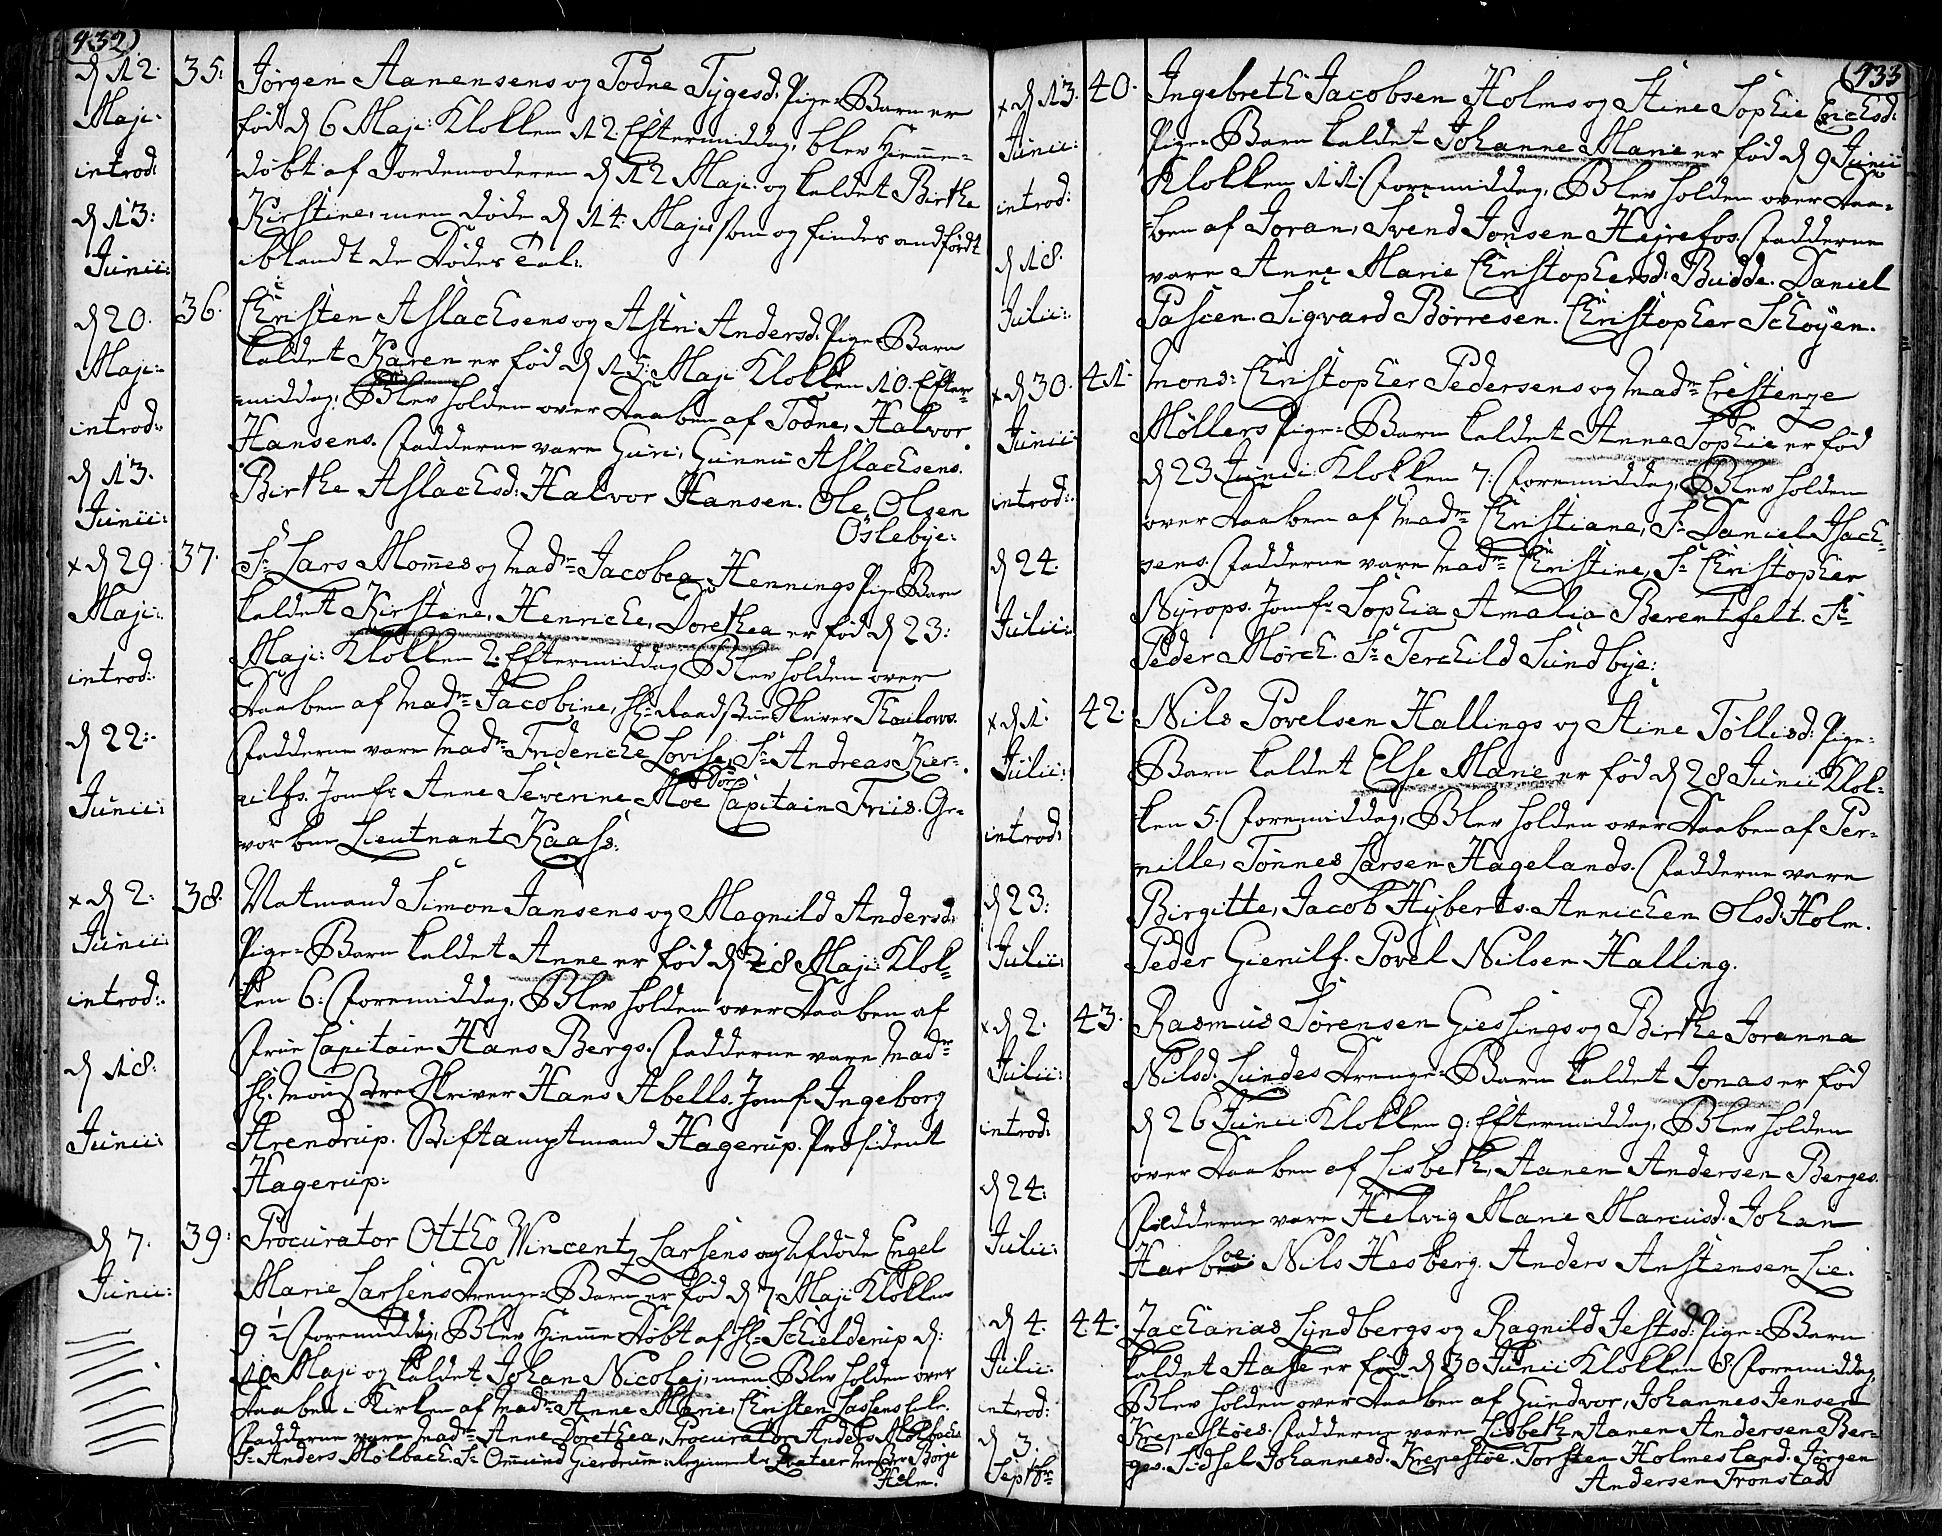 432)
d 12.
Maji:
introd:
d 13:
Junii:
35:
Jørgen Aanensens og Todne Tygesd: Pige-Barn er
fød d 6 Maji: Klokken 12 Eftermiddag, blev Hieme-
døbt af Jordemoderen d 12 Maji og kaldet Birthe
Kirstine, men døde d 14: Maji som og findes andførdt
iblandt de Dødes Tal:
d 20.
Maji:
introd:
d 13.
Junii:
36.
Christen Aslachsens og Astri Andersd: Pige-Barn
kaldet Karen er fød d 15: Maji Klokken 10. Efter-
middag, Blev holden over Daaben af Todne, Halvor
Hansens. Fadderne vare Guri, Gunnu Aslachsens.
Birthe Aslachsd: Halvor Hansen. Ole Olsen
Oslebye:
x d 29.
Maji:
introd:
d 22:
Junii:
37.
Sr Lars Momes og Madme Jacobea Hennings Pige Barn
kaldet Kirstine, Henriche, Dorethea er fød d 23:
Maji: Klokken 2. Eftermiddag Blev holden over
Daaben af Madme Jacobine, Hr Raadstue Skriver Thaulows.
Fadderne vare Madme Frideriche Lovise, Sr Andreas Kier-
ulfs. Jomfr Anne Severine Moe Capitain Friis. Ge-
vorben Lieutnant Kaass.
x d 2:
Junii:
introd:
d 18:
Junii:
38.
Natmand Simon Jansens og Magnild Andersd:
Pige-Barn kaldet Anne er fød d 28 Maji: Klok-
ken 6: Formiddag, Blev holden over Daaben af
Frue Capitain Hans Bergs. Fadderne vare Madme
Hr. Mønstre Skriver Hans Abells. Jomfr Ingeborg
Arendrup. Stiftamptmand Hagerup. Præsident
Hagerup:
d 7.
Junii:
39:
Procurator Otto Wincentz Larsens og Afdøde Engel
Marie Larsens Drenge-Barn er fød d 7 Maji Klokken
9 1/2 Formiddag, Blev Hieme Døbt af Hr. Schielderup d:
10 Maji og kaldet Johan Nicolaj, men Blev holden over
Daaben i Kirken af Madme Anne Marie, Christen Lassens
Fadderne vare Madme Anne Dorethea, Procurator Anders Mølbachs
Sr Anders Mølbach. Sr Omund Gierdrum. Regiments Børje
Holm.
(433
x d 13.
Junii:
introd:
d 18.
Julii:
40.
Ingebreth Jacobsen Holms og Stine Sophie Erichsd:
Pige-Barn kaldet Johanne Marie er fød d 9 Junii
Klokken 11. Formiddag, Blev holden over Daa-
ben af Joran, Svend Jonsen Hejrefos. Fadderne
vare Anne Marie Christophersd: Budde. Daniel
Pascen. Sigvard Børresen. Christopher Schøyen.
x d 30.
Junii:
introd:
d 24.
Julii:
41.
Mons: Christopher Pedersens og Madme Crestenze
Møllers Pige-Barn kaldet Anne Sophie er fød
d 23 Junii Klokken 7: Formiddag, Blev holden
over Daaben af Madme Christiane, Sr Daniel Isach-
sens. Fadderne vare Madme Christine, Sr Christopher
Nyrops. Jomfr: Sophia Amalia Berentfelt. Sr
Peder Mørch. Sr Terchild Sundbye:
x d 1.
Julii:
introd:
d 23:
Julii:
42.
Nils Povelsen Hallings og Stine Tøllisd: Pige-
Barn kaldet Else Marie er fød d 28 Junii Klok-
ken 5. Formiddag, Blev holden over Daaben af Per-
nille, Tønnes Larsen Hagelands. Fadderne vare
Birgitte, Jacob Hyberts. Annichen Olsd: Holm.
Peder Gierulf. Povel Nilsen Halling.
x d 2.
Julii:
introd:
d 24:
Julii:
43.
Rasmus Sørensen Giessings og Birthe Joranna
Nilsd: Lundes Drenge-Barn kaldet Jonas er fød
d 26 Junii: Klokken 9: Eftermiddag, Blev holden
over Daaben af Lisbeth, Aanen Andersen Berges.
Fadderne vare Helvig Marie Marcusd: Johan
Harboe: Nils Hesberg. Anders Anstensen Lie.
d 4.
Julii:
introd:
d 3.
Septbr:
44.
Zacharias Lyndbergs og Ragnild Jestsd: Pige-Barn
kaldet Aase er fød d 30 Junii Klokken 8 Formiddag,
Blev holden over Daaben af Gundvor, Johannes Jensen
Krepestøes. Fadderne vare Lisbeth, Aanen Andersen Ber-
ges. Sidsel Johannesd: Krepestøe. Torsten Holmesland. Jørgen
Andersen Tronstad.